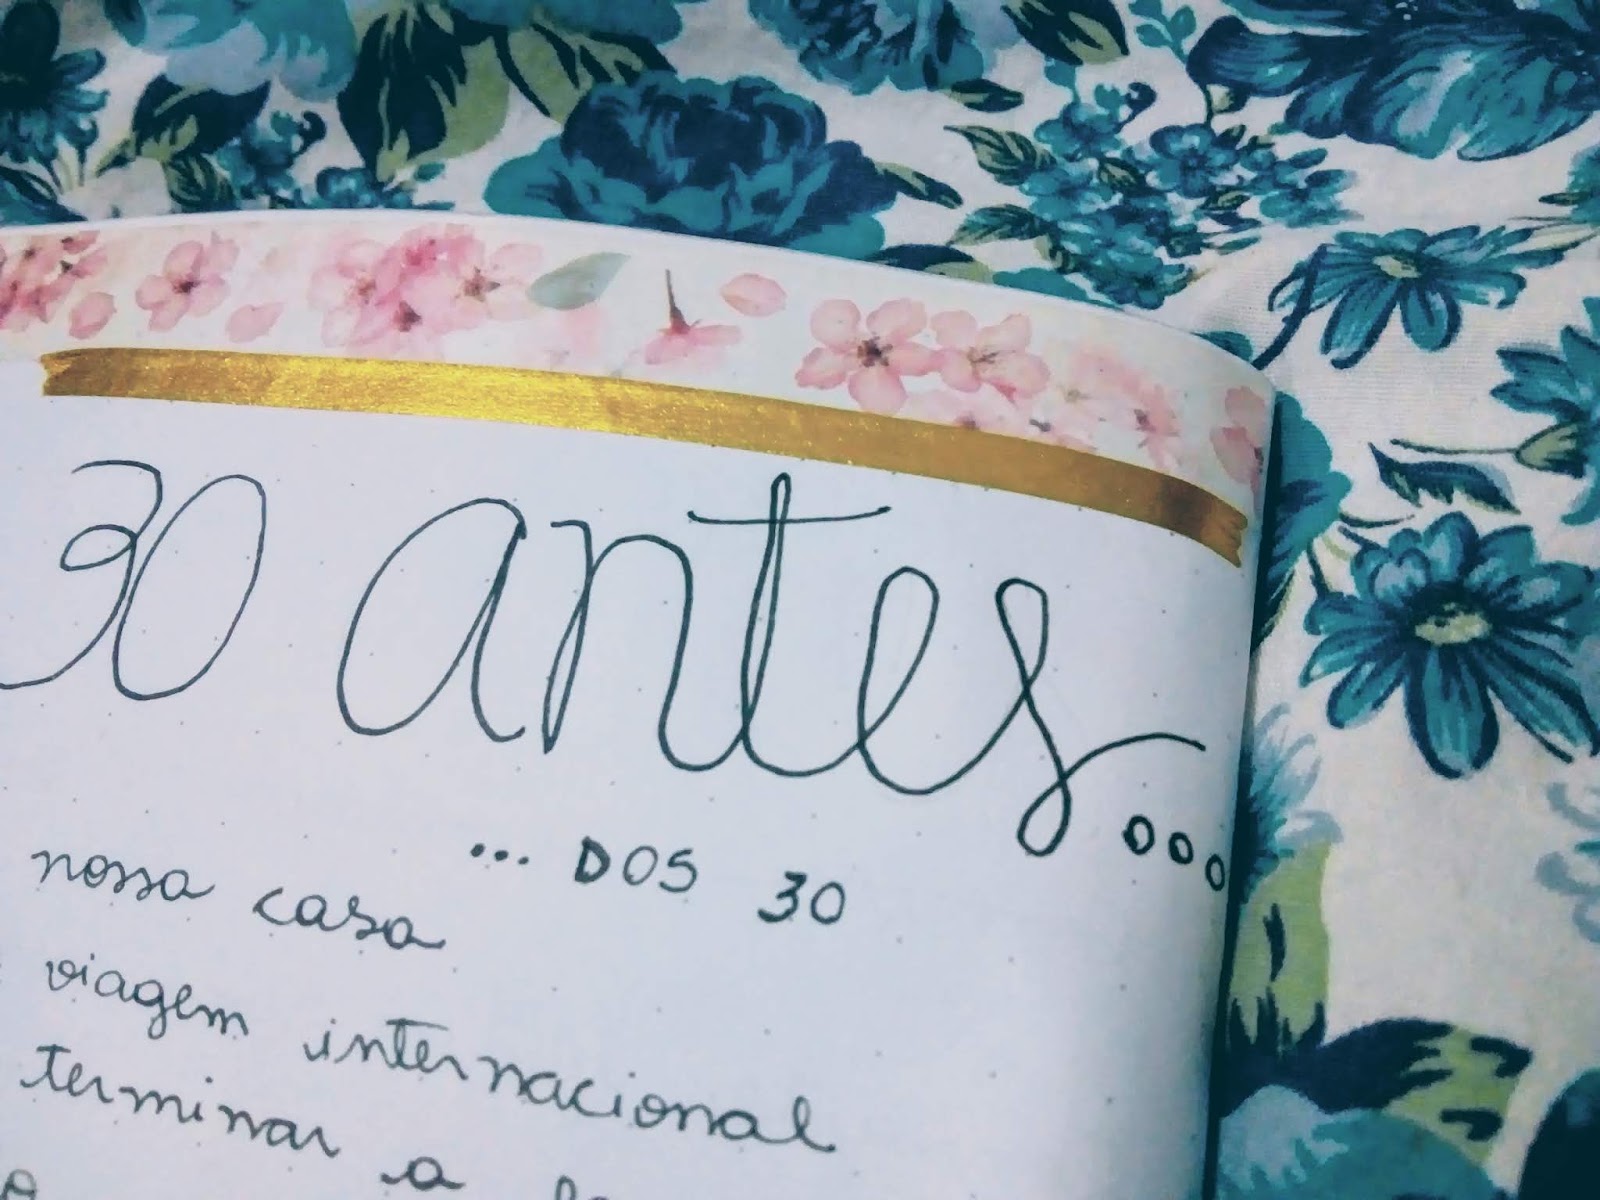 30 antes...
... DOS 30
nossa casa
viagem internacional
terminar a